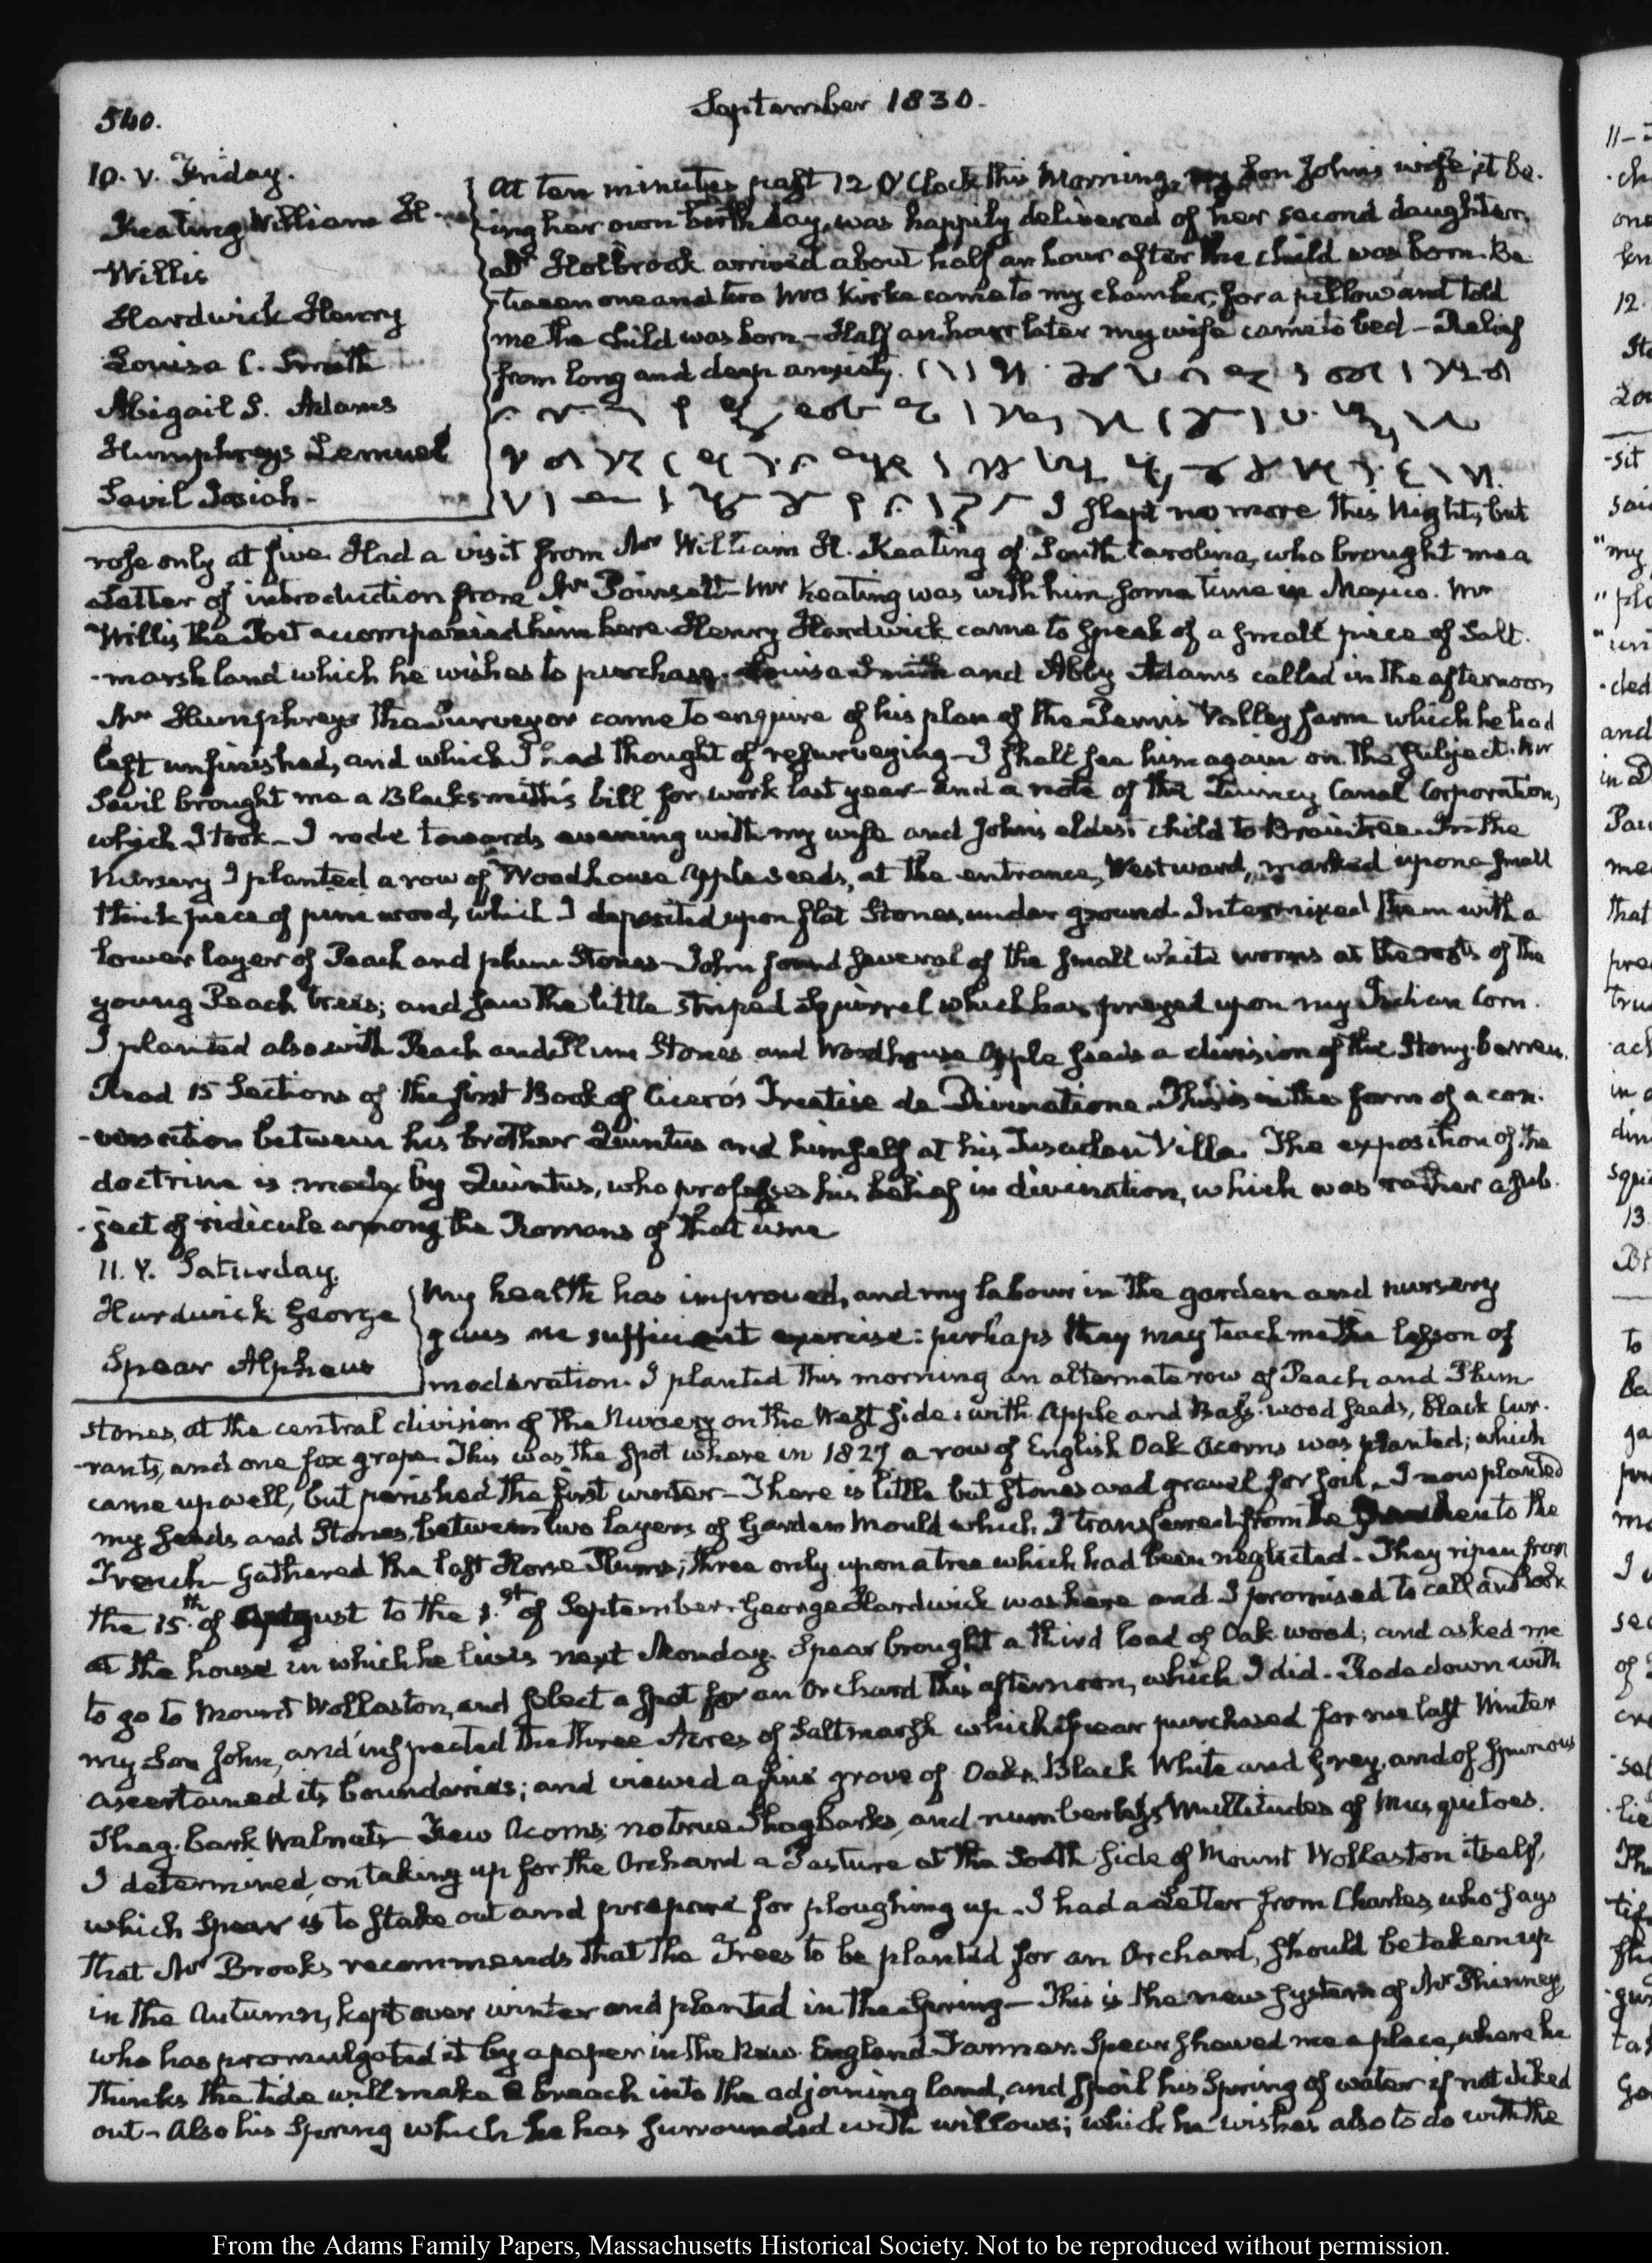 540.
September 1830.
10. V. Friday.
Keating William H.
Willis
Hardwick Henry
Louisa C. Smith
Abigail S. Adams
Humphreys Lemuel
Savil Josiah.
At ten minutes past 12 O'Clock this Morning, my Son John's wife, it be-
ing her own birth day, was happily delivered of her second daughter.
Dr Holbrook arrived about half an hour after the child was born. Be-
tween one and two Mrs Kirke came to my chamber, for a pillow and told
me the child was born — Half an hour later my wife came to bed — Relief
from long and deep anxiety.
I slept no more this Night, but
rose only at five. Had a visit from Mr William H. Keating of South Carolina, who brought me a
Letter of introduction from Mr Poinsett — Mr Keating was with him some time in Mexico. Mr
Willis the Poet accompanied him here. Henry Hardwick came to speak of a small piece of Salt
-marsh land which he wishes to purchase. Louisa Smith and Abby Adams called in the afternoon
Mr Humphreys the Surveyor came to enquire of his plan of the Penns Valley farm which he had
left unfinished, and which I had thought of resurveying — I shall see him again on the subject. Mr
Savil brought me a Blacksmith's bill for work last year and a note of the Quincy Canal Corporation,
which I took — I rode towards evening with my wife and John's eldest child to Braintree. In the
Nursery I planted a row of Woodhouse Apple seeds, at the entrance, Westward, marked upon a small
thick piece of pine wood, which I deposited upon flat Stones, under ground. Intermixed them with a
lower layer of Peach and plum Stones — John found several of the small white worms at the roots of the
young Peach trees; and saw the little striped Squirrel which has preyed upon my Indian Corn.
I planted also with Peach and Plum Stones and Woodhouse Apple seeds a division of the Stony-barren.
Read 15 Sections of the first Book of Cicero's Treatise de Divinatione. This is in the form of a con-
-versation between his brother Quintus and himself at his Tusculan Villa. The exposition of the
doctrine is made by Quintus, who professes his belief in divination, which was rather a sub-
-ject of ridicule among the Romans of that time
11. V. Saturday.
Hardwick George
Spear Alpheus
My health has improved, and my labour in the garden and nursery
gives me sufficient exercise: perhaps they may teach me the lesson of
moderation. I planted this morning an alternate row of Peach and Plum
stones, at the central division of the Nursery on the West side: with Apple and Bass-wood seeds, black Cur-
-rants, and one fox grape. This was the spot where in 1827 a row of English Oak Acorns was planted; which
came up well, but perished the first winter — There is little but stones and gravel for soil. I now planted
my seeds and Stones, between two layers of Garden Mould which I transferred from the to the
Trench — Gathered the last Horse Plums; three only upon a tree which had been neglected. They ripen from
the 15th of August to the 1st of September. George Hardwick was here and I promised to call and look
at the house in which he lives next Monday. Spear brought a third load of Oak wood; and asked me
to go to Mount Wollaston, and select a spot for an Orchard this afternoon, which I did. Rode down with
my Son John, and inspected the three Acres of Saltmarsh which Spear purchased for me last Winter
ascertained its boundaries; and viewed a fine grove of Oaks Black White and Grey, and of spurious
Shag-bark Walnuts — Few Acorns; no true Shagbarks, and numberless Multitudes of Musquitoes.
I determined on taking up for the Orchard a Pasture at the South side of Mount Wollaston itself,
which Spear is to stake out and prepare for ploughing up. I had a Letter from Charles who says
that Mr Brooks recommends that the Trees to be planted for an Orchard, should be taken up
in the Autumn, kept over winter and planted in the Spring — This is the new system of Mr Phinney
who has promulgated it by a paper in the New England Farmer. Spear showed me a place, where he
thinks the tide will make a breach into the adjoining land, and spoil his Spring of water if not diked
out — Also his Spring which he has surrounded with willows; which he wishes also to do with the
From the Adams Family Papers, Massachusetts Historical Society. Not to be reproduced without permission.